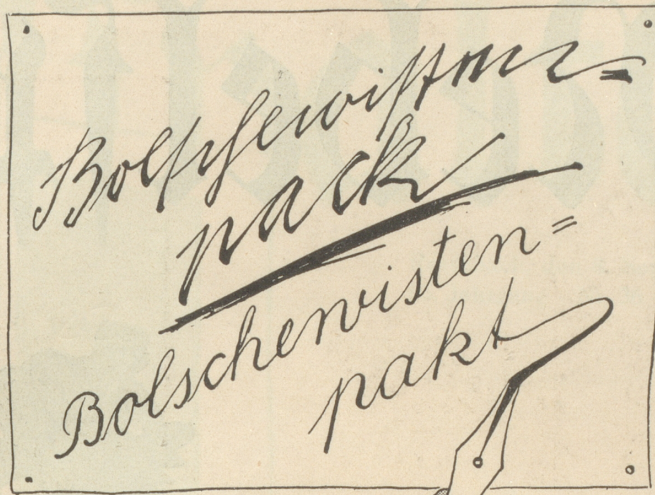 Bolschewisten=
pack
Bolschewisten=
pakt